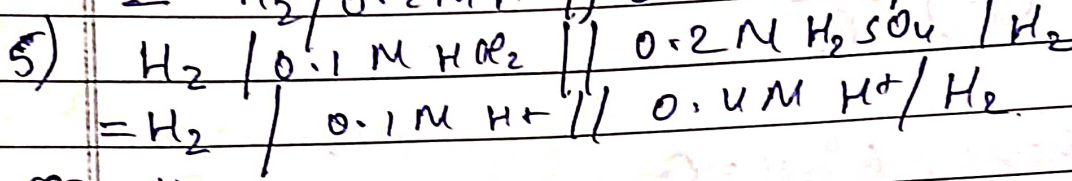 5) H2 / 0.1 M HCl2 // 0.2 M H2SO4 / H2
= H2 / 0.1 M H+ // 0.4 M H+ / H2.